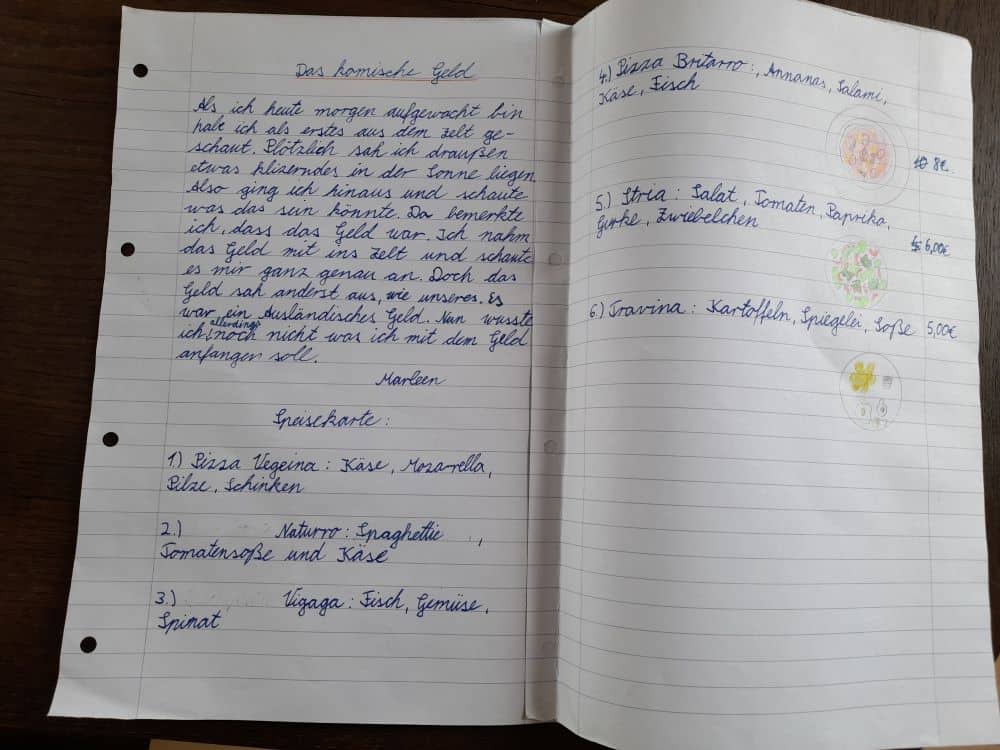 Das komische Geld
Als ich heute morgen aufgewacht bin
habe ich als erstes aus dem Zelt ge-
schaut. Plötzlich sah ich draußen
etwas klizerndes in der Sonne liegen.
Also ging ich hinaus und schaute
was das sein könnte. Da bemerkte
ich, dass das Geld war. Ich nahm
das Geld mit ins Zelt und schaute
es mir ganz genau an. Doch das
Geld sah anderst aus, wie unseres. Es
war ein Ausländisches Geld. Nun wusste
ich allerdings noch nicht was ich mit dem Geld
anfangen soll.
Marleen
Speisekarte:
1.) Pizza Vegeina: Käse, Mozarella,
Pilze, Schinken
2.) Naturro: Spaghettie ,
Tomatensoße und Käse
3.) Vigaga: Fisch, Gemüse,
Spinat
4.) Pizza Britarro:, Annanas, Salami,
Käse, Fisch
8€.
5.) Stria: Salat, Tomaten, Paprika,
Gurke, Zwiebelchen
6,00€
6.) Travina: Kartoffeln, Spiegelei, Soße 5,00€